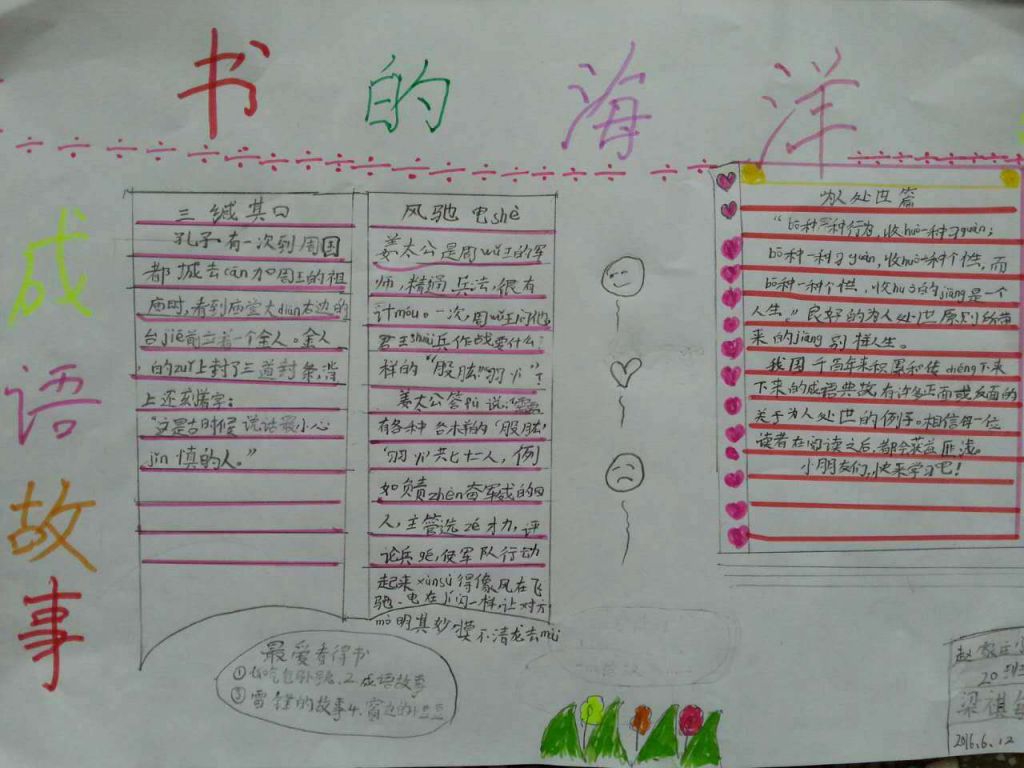 书的海洋
成语故事
三缄其口
孔子有一次到周国
都城去cān加周王的祖
庙时,看到庙堂大diàn右边的
台jiē前立着一个金人。金人
的zuǐ上封了三道封条,背
上还刻着字:
"这是古时候说话最小心
jǐn慎的人。"
风驰电shè
姜太公是周wǔ王的军
师,精通兵法,很有
计móu。一次,周wǔ王问他,
君王shuài兵作战要什么
样的"股肱""羽yì"?
姜太公答 说:
有各种各样的"股肱"
"羽yì"共七十二人,例
如负责zhèn奋军威的四
人,主管选zé才力,评
论兵 ,使军队行动
起来xùnsù得像风在飞
驰、电在 闪一样,让对方
mò明其妙,摸不清龙去mài
为人处世篇
"bō种一种行为,收huò一种习guàn;
bō种一种习guàn,收huò一种个性,而
bō种一种个性,收huò的jiāng是一个
人生。"良好的为人处世原则 带
来的jiāng 别样人生。
我国千百年来积累和传chéng下来
下来的成语典故,有许多正面或反面的
关于为人处世的例子。相信每一位
读者在阅读之后,都会获益匪浅。
小朋友们,快来学习吧!
最爱看得书
① 2.成语故事
③雷锋的故事4.窗边的小豆豆
赵
20 班
梁祺
2016.6.12